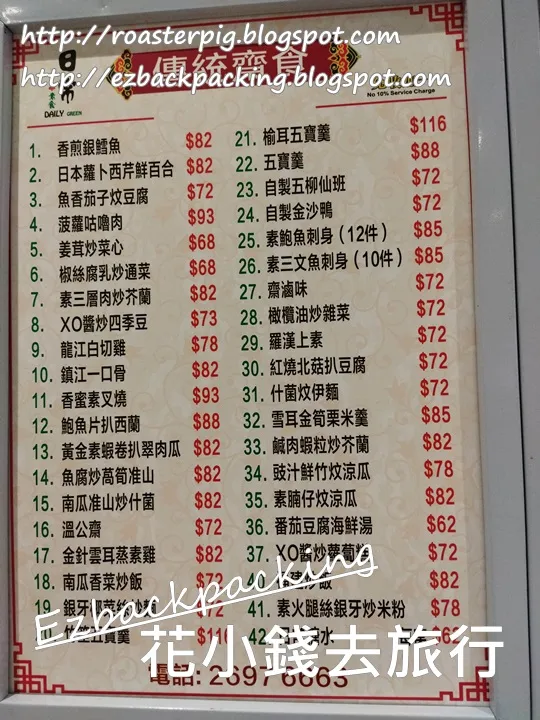 http://roasterpig.blogspot.com
http://ezbackpacking.blogspot.com
傳統齋食
DAILY GREEN
No 10% Service Charge
1. 香煎銀鱈魚 $82
2. 日本蘿卜西芹鮮百合 $82
3. 魚香茄子炆豆腐 $72
4. 菠蘿咕嚕肉 $93
5. 姜茸炒菜心 $68
6. 椒絲腐乳炒通菜 $68
7. 素三層肉炒芥蘭 $82
8. XO醬炒四季豆 $73
9. 龍江白切雞 $78
10. 鎮江一口骨 $82
11. 香蜜素叉燒 $93
12. 鮑魚片扒西蘭 $88
13. 黃金素蝦卷扒翠肉瓜 $82
14. 魚腐炒萵筍准山 $82
15. 南瓜准山炒什菌 $82
16. 溫公齋 $72
17. 金針雲耳蒸素雞 $82
18. 南瓜香菜炒飯 $72
19. 銀牙 $72
竹笙五寶羹
21. 榆耳五寶羹 $116
22. 五寶羹 $88
23. 自製五柳仙班 $72
24. 自製金沙鴨 $72
25. 素鮑魚刺身（12件） $85
26. 素三文魚刺身（10件） $85
27. 齋滷味 $72
28. 橄欖油炒雜菜 $72
29. 羅漢上素 $72
30. 紅燒北菇扒豆腐 $72
31. 什菌炆伊麵 $72
32. 雪耳金筍粟米羹 $85
33. 鹹肉蝦粒炒芥蘭 $82
34. 豉汁鮮竹炆涼瓜 $78
35. 素腩仔炆涼瓜 $82
36. 番茄豆腐海鮮湯 $62
37. XO醬炒蘿蔔糕 $72
40. 炒飯 $82
41. 素火腿絲銀牙炒米粉 $78
42
Ezbackpacking
花小錢去旅行
電話: 2697 6663